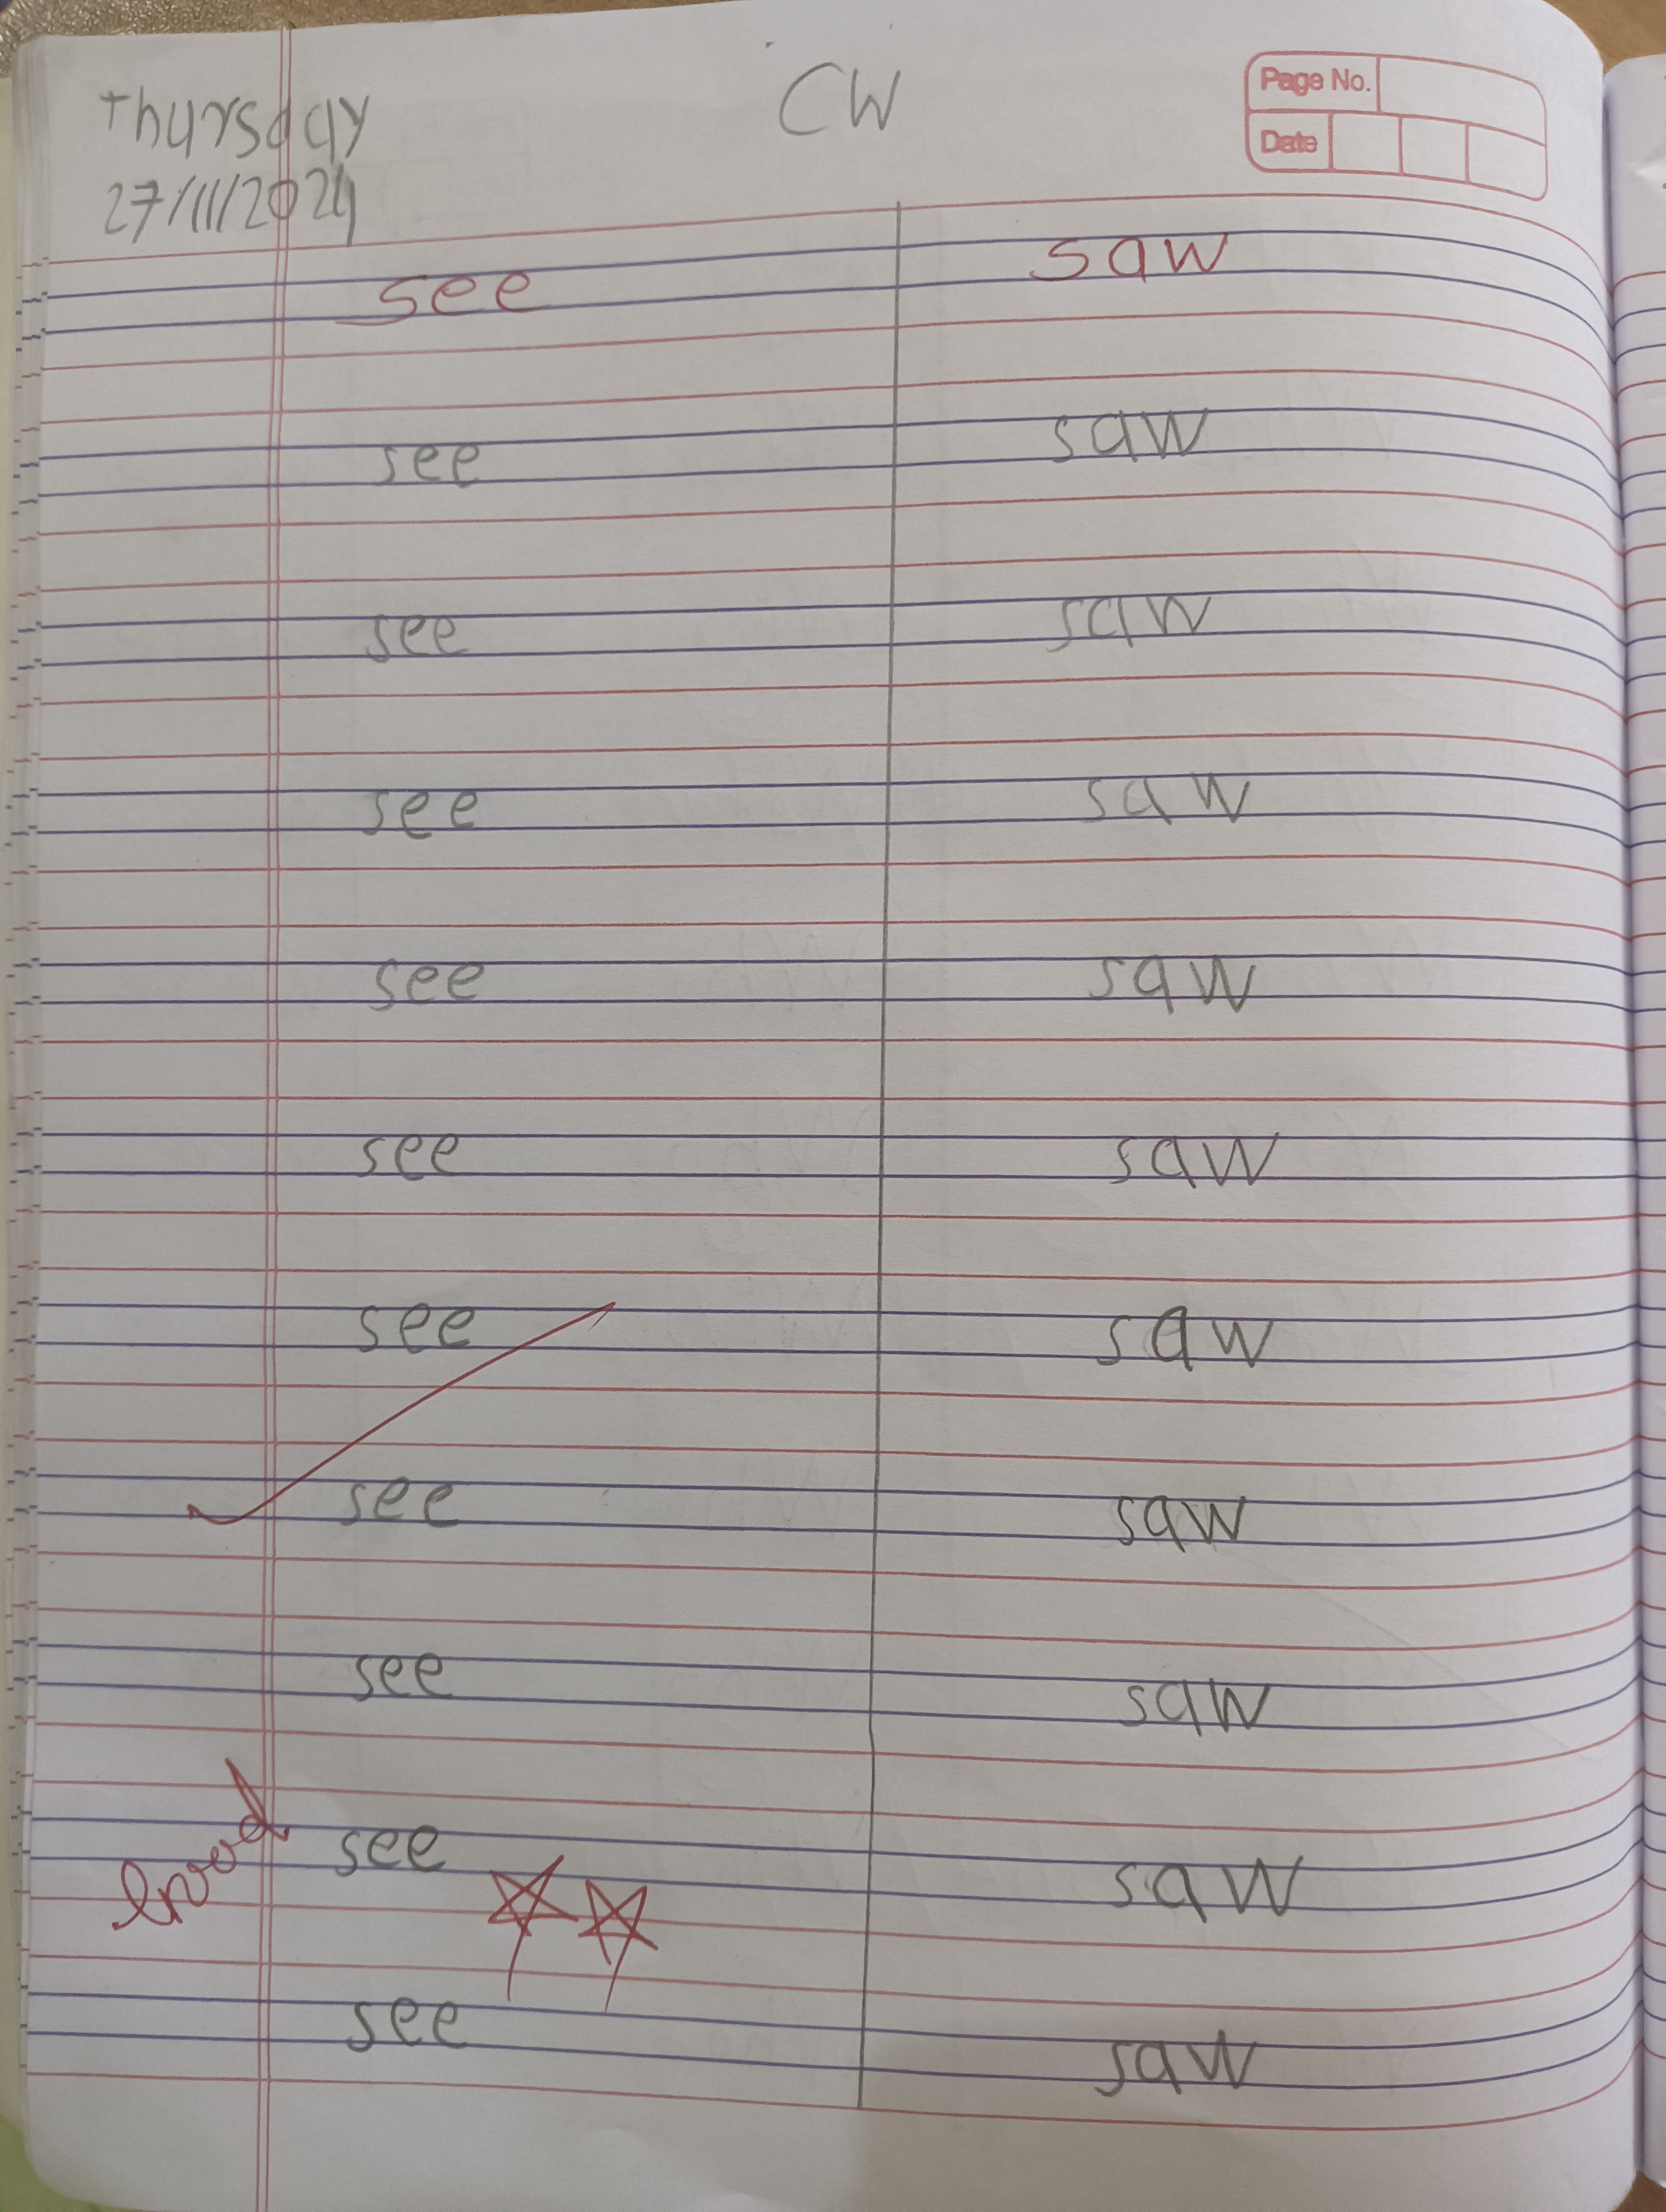 Thursday CW Page No.
27/11/2024 Date
see saw
see saw
see saw
see saw
see saw
see saw
see saw
see saw
see saw
Good see saw
see saw